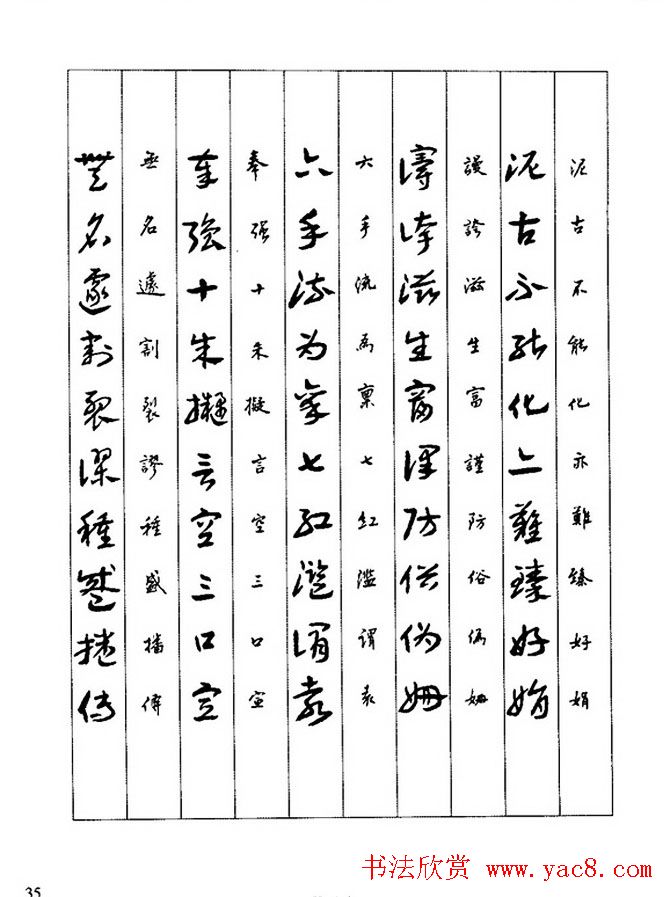 泥古不能化亦難臻好娟
泥古不能化亦難臻好娟
謾誇滋生富謹防俗偽姍
謾誇滋生富謹防俗偽姍
六手流為稟七紅濫謂袁
六手流为稟七紅濫謂袁
奉强十朱擬言空三口宣
奉强十朱擬言空三口宣
無名遽割裂謬種盛播傳
無名遽割裂謬種盛播傳
书法欣赏 www.yac8.com
35